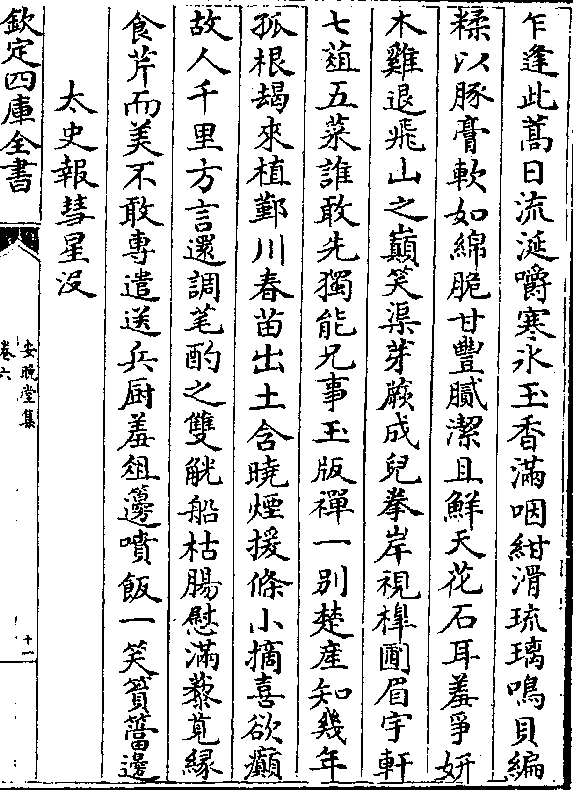 乍逢此蒿日流涎嚼寒冰玉香滿咽紺滑琉璃鳴貝編
糅以豚膏軟如綿脆甘豐膩潔且鮮天花石耳羞爭妍
木雞退飛山之巔笑渠芽蕨成兒拳岸視榫圃眉宇軒
七葅五菜誰敢先獨能兄事玉版禪一別楚産知幾年
孤根朅來植鄞川春苗出土含曉煙援條小摘喜欲顛
故人千里方言還調芼酌之雙觥船枯腸慰滿藜莧緣
食芹而美不敢專遣送兵厨羞俎籩噴飯一笑篔簹邊
太史報彗星没
欽定四庫全書
安晚堂集
卷六
十一